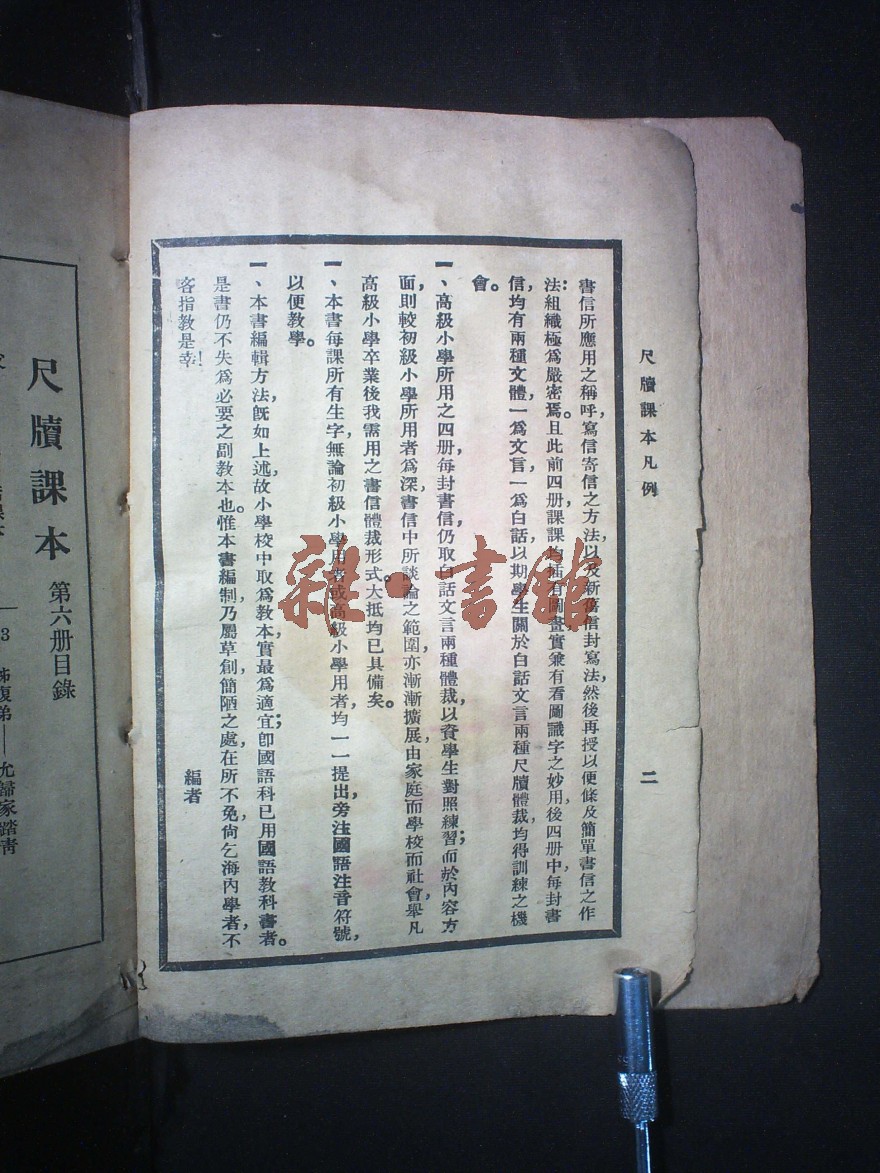 尺牘課本凡例
二
書信所應用之稱呼，寫信寄信之方法，以及新舊信封寫法，然後再授以便條及簡單書信之作
法：組織極爲嚴密焉。且此前四册課課均插有圖畫，實兼有看圖識字之妙用，後四册中，每封書
信，均有兩種文體，一爲文言，一爲白話，以期學生關於白話文言兩種尺牘體裁，均得訓練之機
會。
一、高級小學所用之四册，每封書信，仍取白話文言兩種體裁，以資學生對照練習；而於內容方
面，則較初級小學所用者爲深，書信中所談論之範圍，亦漸漸擴展，由家庭而學校而社會，舉凡
高級小學卒業後我需用之書信體裁形式，大抵均已具備矣。
一、本書每課所有生字，無論初級小學用者，或高級小學用者，均一一提出，旁注國語注音符號，
以便教學。
一、本書編輯方法，旣如上述，故小學校中取爲教本，實最爲適宜；卽國語科已用國語教科書者。
是書仍不失爲必要之副教本也。惟本書編制，乃屬草創，簡陋之處，在所不免，尙乞海內學者，不
客指教是幸！
編者
雜·書館
尺牘課本 第六册目錄
3 姊復弟——允歸家踏青